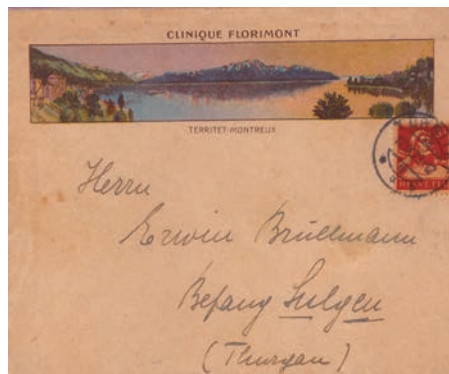 CLINIQUE FLORIMONT
TERRITET-MONTREUX
Herrn
Erwin Brüllmann
Befang Sulgen
(Thurgau)